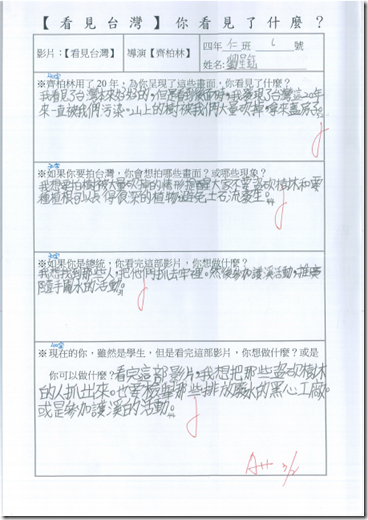 【看見台灣】你看見了什麼?
影片:【看見台灣】 導演【齊柏林】 四年 仁 班 6 號
姓名:
※齊柏林用了 20 年,為你呈現了這些畫面,你看見了什麼?
我看見了台灣本來好好的,但是看到後面時,我發現了台灣這20年
來一直被我們污染。山上的樹被我們大量砍掉,拿來蓋房子。
※如果你要拍台灣,你會想拍哪些畫面?或哪些現象?
我想要拍樹被大量砍掉的情形提醒大家不要盜砍樹木和要
種植根可以長得很深的植物,避免土石流發生。
※如果你是總統,你看完這部影片,你想做什麼?
我想找到那些人,把他們抓去牢裡。然後參加護溪活動,推廣
隨手關水的活動。
※現在的你,雖然是學生,但是看完這部影片,你想做什麼?或是
你可以做什麼?看完這部影片,我想把那些盜砍樹木
的人抓出來。也要檢舉那些排放廢水的黑心工廠。
或是參加護溪的活動。
A++